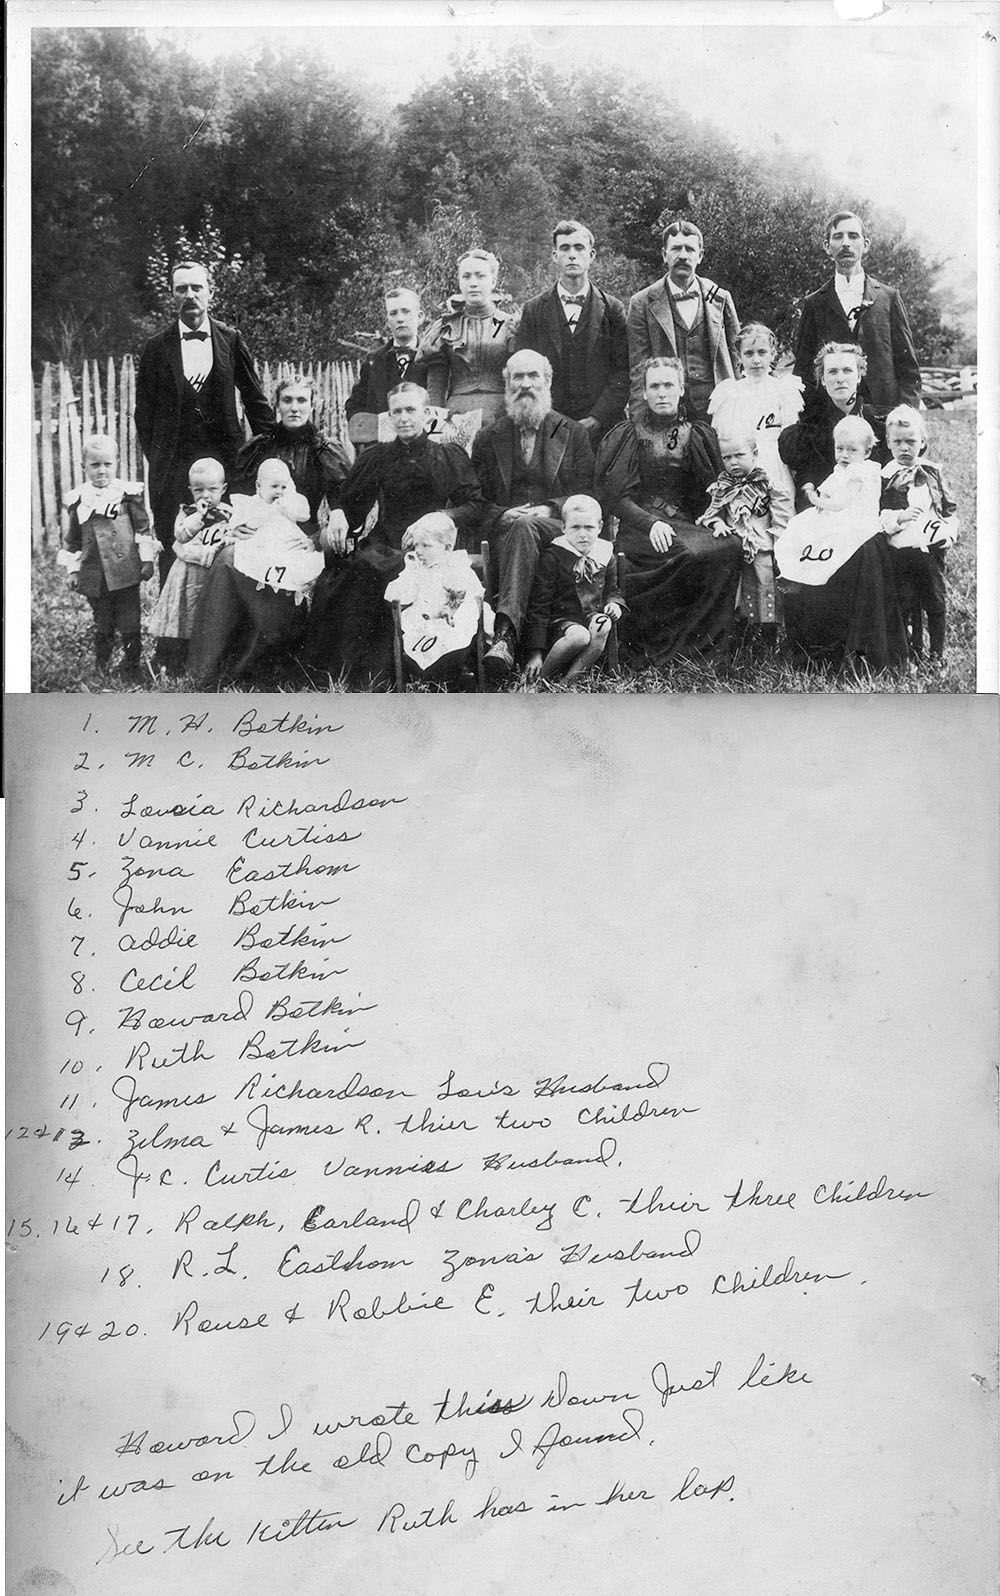 14
8
7
11
6
2
1
3
12
15
16
17
13
20
19
10
9
1. M. H. Botkin
2. M C. Botkin
3. Lovcia Richardson
4. Vannie Curtiss
5. Zona Easthom
6. John Botkin
7. Addie Botkin
8. Cecil Botkin
9. Howard Botkin
10. Ruth Botkin
11. James Richardson Lou's Husband
12 & 13. Zilma & James R. thier two children
14 J. C. Curtis Vannies Husband.
15, 16 & 17. Ralph, Earland & Charley C. their three children
18. R. L. Easthom Zona's Husband
19 & 20. Rouse & Robbie E. their two children.
Howard I wrote this down Just like
it was on the old copy I found.
See the Kitten Ruth has in her lap.